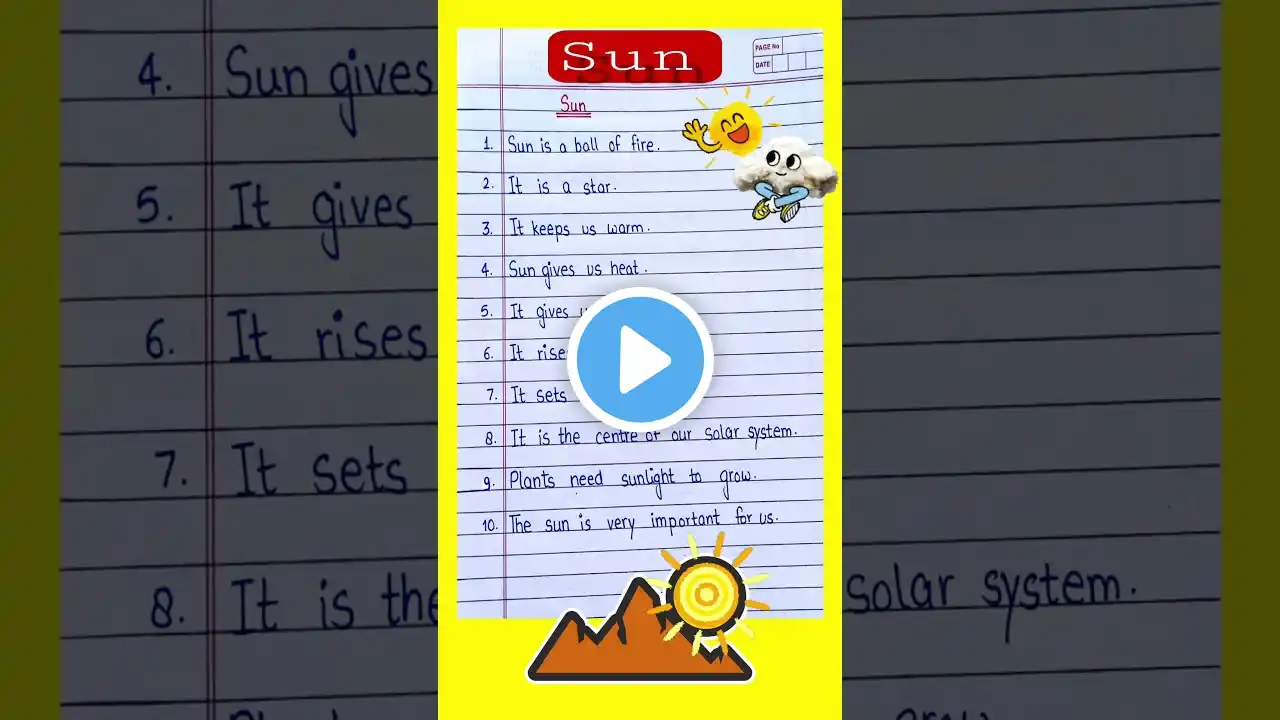 Sun
PAGE No
DATE
Sun
1. Sun is a ball of fire.
2. It is a star.
3. It keeps us warm.
4. Sun gives us heat.
5. It gives
6. It rises
7. It sets
8. It is the centre of our solar system.
9. Plants need sunlight to grow.
10. The sun is very important for us.
4. Sun gives
5. It gives
6. It rises
7. It sets
8. It is the
solar system.